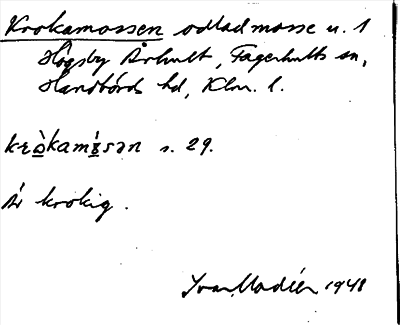 Krokamossen odlad mosse u. 1
Högsby Århult, Fagerhults sn,
Handbörds hd, Klm. l.
krò̱kamå̱sən s. 29.
Är krokig.
Ivar Modéer 1948